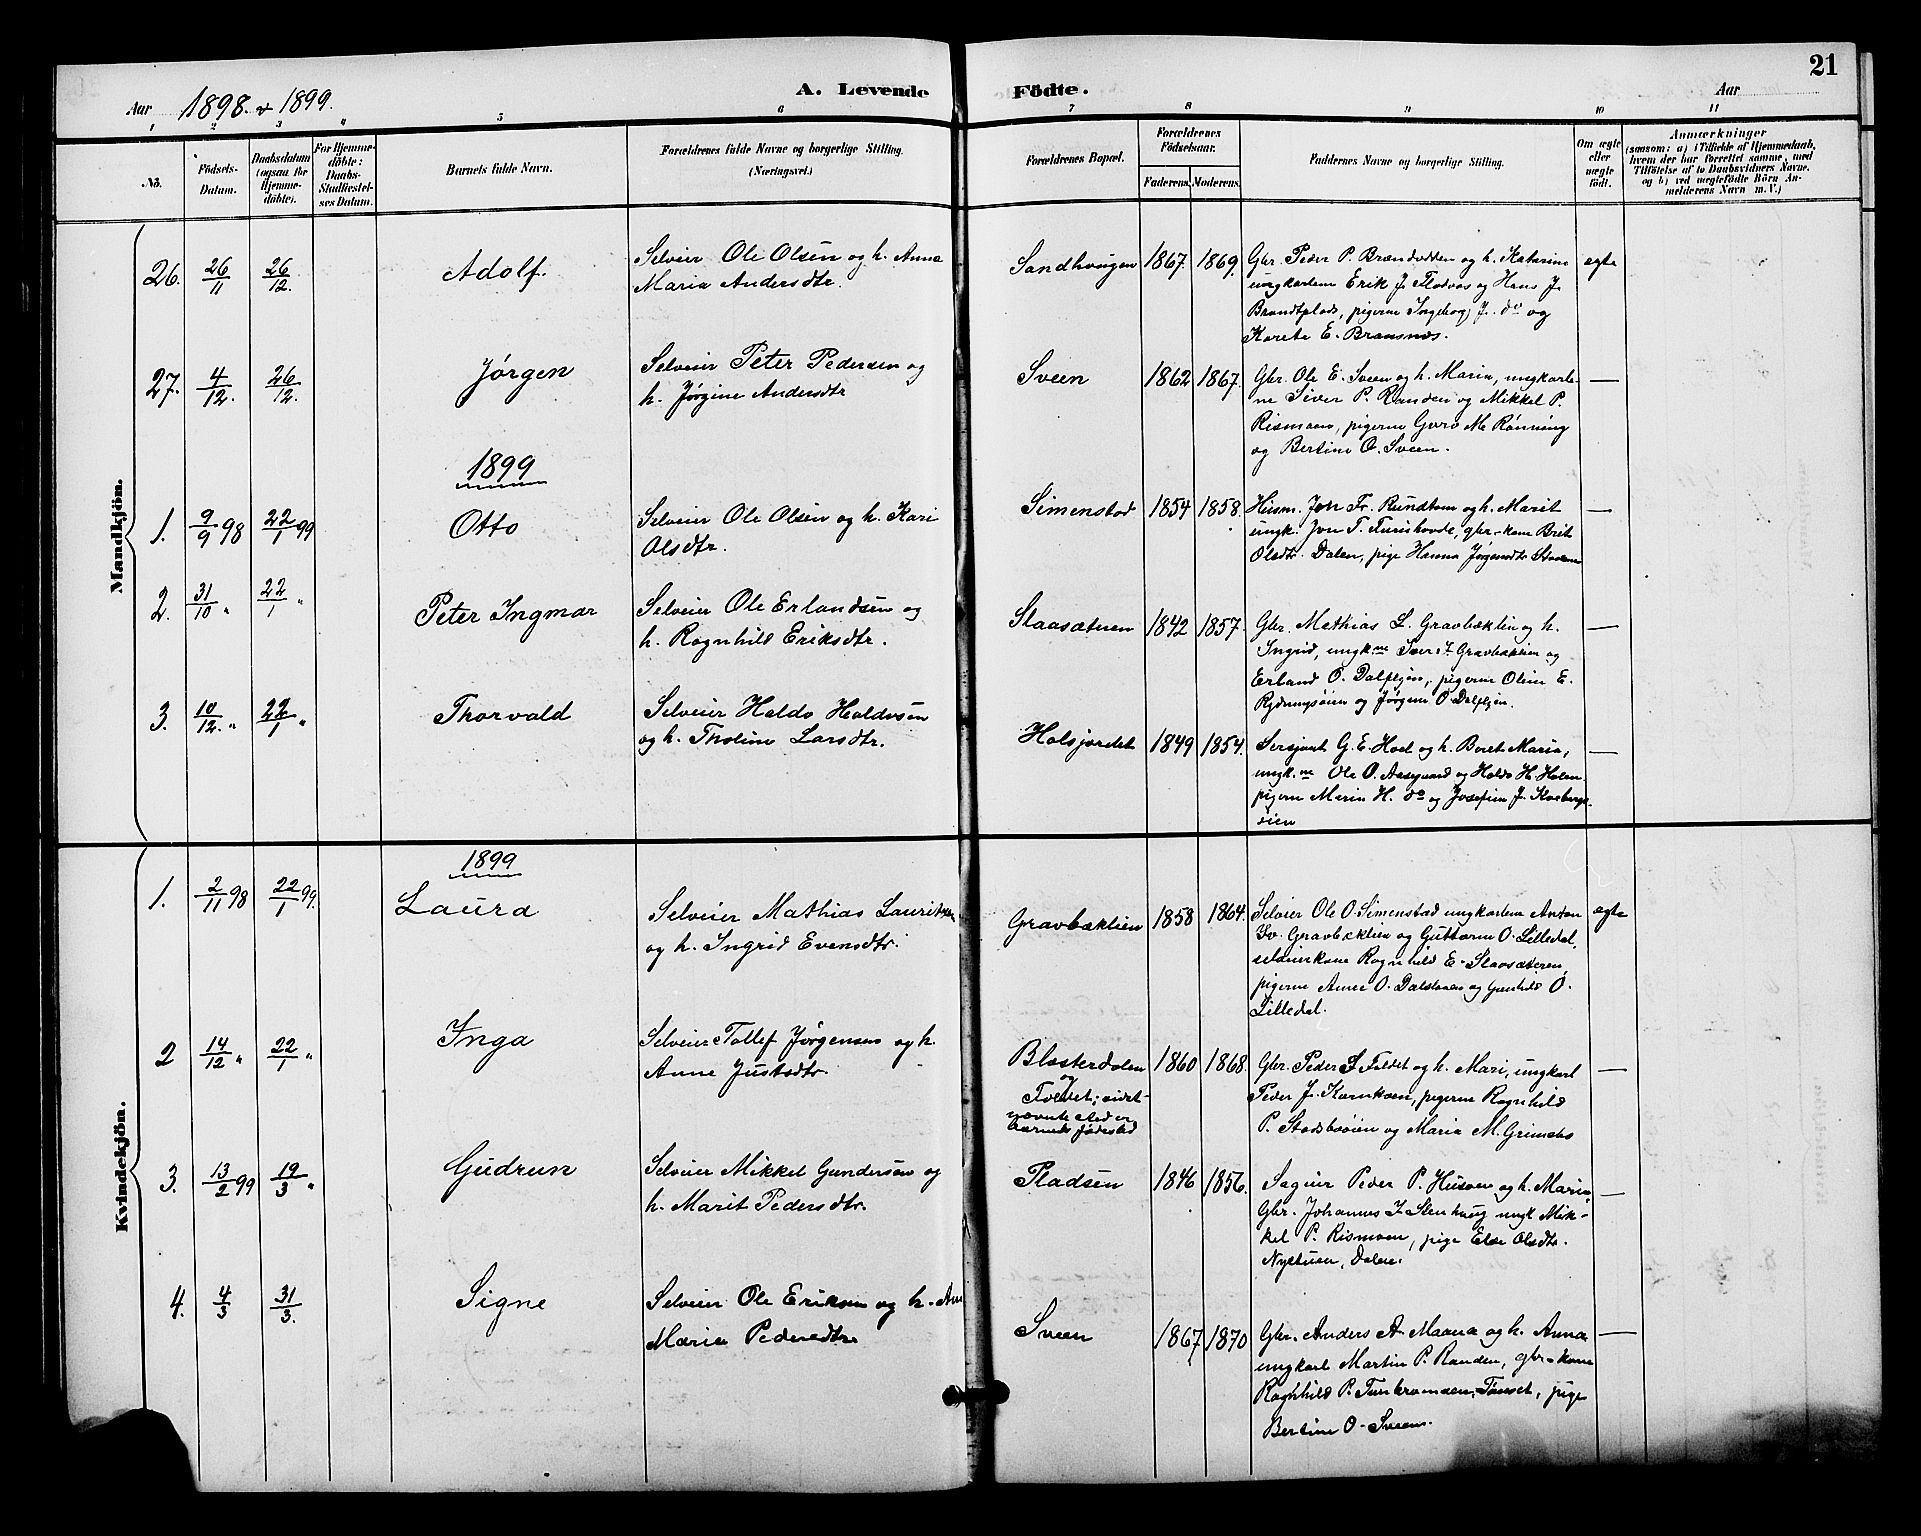 21
Aar 1898 & 1899.
A. Levende Födte.
Aar
1 2 3 4 5 6 7 8 9 10 11
No.
Födsels-
Datum.
Daabsdatum
(ogsaa for
Hjemme-
døbte).
For Hjemme-
døbte:
Daabs-
Stadfæstel-
ses Datum.
Barnets fulde Navn.
Forældrenes fulde Navne og borgerlige Stilling.
(Næringsvei.)
Forældrenes Bopæl.
Forældrenes
Fødselsaar.
Faderens. Moderens.
Faddernes Navne og borgerlige Stilling.
Om ægte
eller
uægte
født.
Anmærkninger
(saasom: a) i Tilfælde af Hjemmedaab,
hvem der har forrettet samme, med
Tilföielse af to Daabsvidners Navne,
og b) ved uegtefödte Börn An-
melderens Navn m. V.)
Mandkjön.
26. 26/11 26/12.
Adolf.
Selveier Ole Olsen og h. Anna
Maria Andersdtr.
Sandhaugen 1867. 1869.
Gbr. Peder P. Brændvolden og h. Katerina
ungkarlene Erik J. Flodvas og Hans J.
Brandtplads, pigerne Ingeborg J. do og
Karete E. Bransnes.
ægte
27. 4/12. 26/12.
Jørgen
Selveier Peter Pedersen og
h. Jørgine Andersdtr
Sveen 1862 1867.
Gbr. Ole E. Sveen og h. Maria, ungkarle-
ne Siver P. Randen og Mikkel P.
Rismoen, pigerne Guro M. Rønning
og Bertine O. Sveen.
—
1899
1. 9/9 98 22/1 99
Otto
Selveier Ole Olsen og h. Kari
Olsdtr.
Simenstad 1854 1858.
Husm. Jon Fr. Rundtom og h. Marit
ungk. Jon T. Turishovde, gbr-kone Brit
Olsdtr. Dalen, pige Hanna Jørgensdtr
—
2. 31/10 " 22/1 "
Peter Ingmar
Selveier Ole Erlandsen og
h. Ragnhild Eriksdtr.
Slaasæteren 1842 1857.
Gbr. Mathias L. Gravbæklien og h.
Ingrid, ungk.ne Iver I. Gravbæklien og
Erland O. Dalfljen, pigerne Oline E.
Rydningsøien og Jørgine O Dalfljen.
—
3. 10/12. " 22/1 "
Thorvald
Selveier Haldo Haldosen
og h. Tholine Larsdtr.
Holsjordet 1849 1854.
Sersjant G. E. Hoel og h. Beret Maria,
ungk.ne Ole O. Aasgaard og Haldo H. Holen
pigerne Maria H. do og Josefine J. Kvebergs-
øien
—
Kvindekjön.
1899
1. 2/11 98 22/1 99.
Laura
Selveier Mathias Lauritsen
og h. Ingrid Evensdtr.
Gravbæklien 1858 1864.
Selveier Ole O. Simenstad ungkarlene Anton
Iv. Gravbæklien og Guttorm O. Lilledal,
selveierkone Ragnhild E. Slaasæteren,
pigerne Anne O. Dalstuen og Gunhild O.
Lilledal.
ægte
2 14/12 " 22/1 "
Inga
Selveier Tollef Jørgensen og h.
Anne Justsdtr.
Blæsterdalen
og
Foldet; sidst-
nævnte sted er
barnets fødested
1860 1868.
Gbr. Peder I Foldet og h. Mari, ungkarl
Peder J. Kornkoen, pigerne Ragnhild
P. Stadsbuøien og Maria M. Grimsbo
—
3. 13/2 99 19/3 "
Gudrun
Selveier Mikkel Gundersen og
h. Marit Pedersdtr.
Pladsen 1846 1856.
Sageier Peder P. Husoen og h. Maria
Gbr. Johannes I Stenhaug ungk Mik-
kel P. Rismoen, pige Else Olsdtr.
Nystuen, Dalen.
—
4. 4/3 31/3.
Signe
Selveier Ole Eriksen og h. Ane
Maria Pedersdtr
Sveen 1867 1870
Gbr. Anders A Maana og h. Anna
ungkarl Martin P. Randen, gbr-kone
Ragnhild P. Tunbromoen, Tønset, pige
Bertine O. Sveen.
—